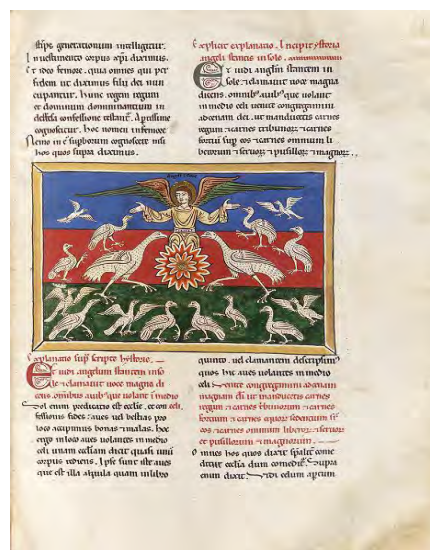 stirps generationum intelligitur.
In vestimento corpus xpi diximus.
et ideo femore. quia omnes qui per
fidem dei diximus filii dei nun
cupantur. hunc regem regum
et dominum dominantium in
cognoscitur. hoc nomen in femore
Nemo in superborum cognoscere nisi
hos quos supra diximus.
Explicit explanatio. Incipit ystoria
angeli stantis in sole.
Et vidi anglm stantem in
sole. et clamavit voce magna
dicens. omnib; avib; que volant
in medio celi venite congregamini
ad cenam dei. ut manducetis carnes
regum et carnes tribunorum et carnes
fortium equos et carnes omnium li
berorum et servorum et pusillorum et magnorum.
Explanatio sup scripte hystorie.
Et vidi angelum stantem in so
le et clamavit voce magna di
cens. omnibus avib; que volant in medio
Sol enim predicatio est eccle.
fessionis fidei: aves vel bestias pro
loco accipimus bonas et malas. hoc
ergo in loco aves volantes in medio
celi unam ecclam dicit quasi unum
corpus. Ipse sunt iste aves
que est illa aquila quam in libro
quinto. vel clamantem descripsim
quos hic aves volantes in medio
celi. venite congregamini ad cenam
magnam dei ut manducetis carnes
regum et carnes tribunorum et carnes
fortium et carnes equorum sedentium
eos et carnes omnium liberorum et servorum
et pusillorum et magnorum.
Omnes hos quos dixit
dicit ecclia dum comedit. Supra
enim dixit.